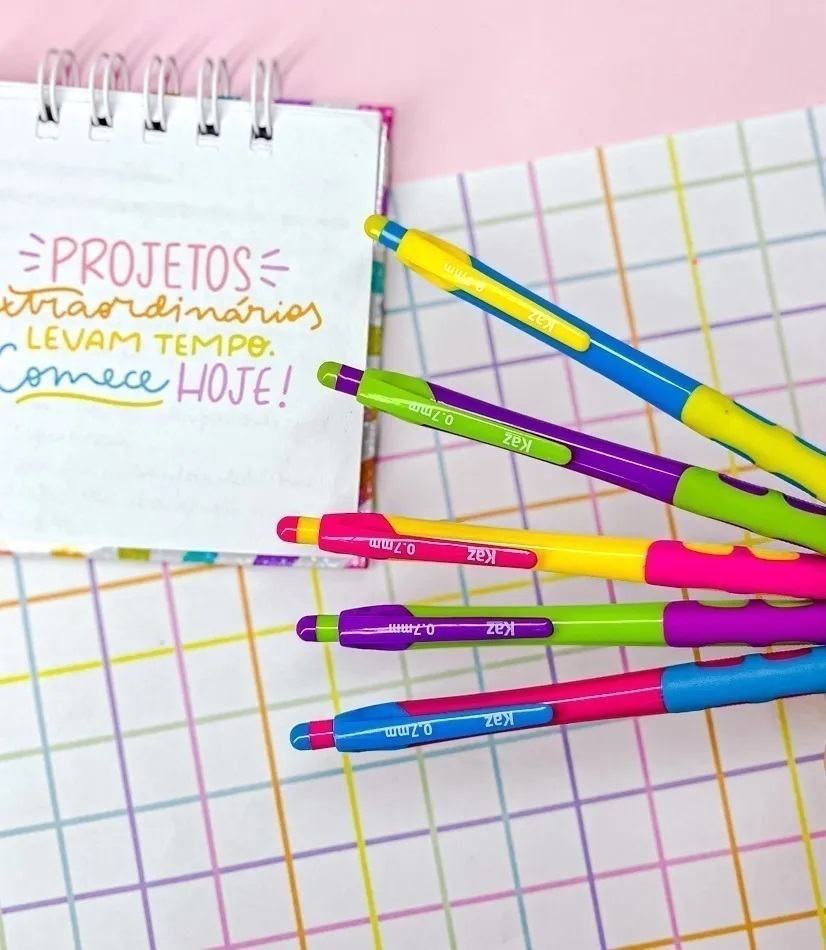 PROJETOS
extraordinários
LEVAM TEMPO.
Comece HOJE!
Kaz 0.7mm
Kaz 0.7mm
Kaz 0.7mm
Kaz 0.7mm
Kaz 0.7mm